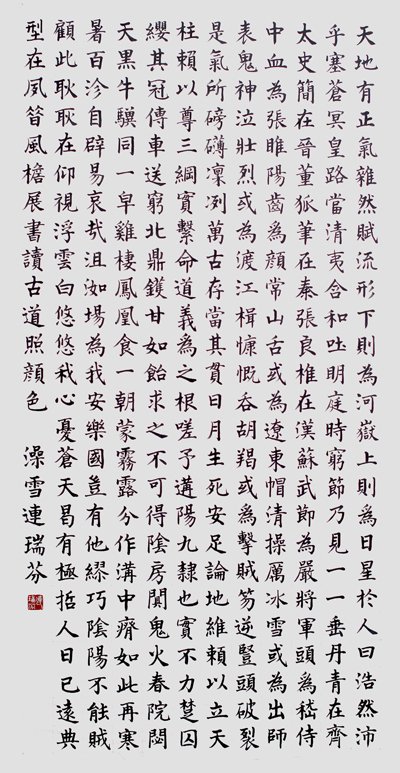 天地有正氣雜然賦流形下則為河嶽上則為日星於人曰浩然沛
乎塞蒼冥皇路當清夷含和吐明庭時窮節乃見一一垂丹青在齊
太史簡在晉董狐筆在秦張良椎在漢蘇武節為嚴將軍頭為嵇侍
中血為張睢陽齒為顏常山舌或為遼東帽清操厲冰雪或為出師
表鬼神泣壯烈或為渡江楫慷慨吞胡羯或為擊賊笏逆豎頭破裂
是氣所磅礡凜冽萬古存當其貫日月生死安足論地維賴以立天
柱賴以尊三綱實繫命道義為之根嗟予遘陽九隸也實不力楚囚
纓其冠傳車送窮北鼎鑊甘如飴求之不可得陰房闃鬼火春院閟
天黑牛驥同一皁雞棲鳳凰食一朝蒙霧露兮作溝中瘠如此再寒
暑百沴自辟易哀哉沮洳場為我安樂國豈有他繆巧陰陽不能賊
顧此耿耿在仰視浮雲白悠悠我心憂蒼天曷有極哲人日已遠典
型在夙昔風檐展書讀古道照顏色 澡雪連瑞芬